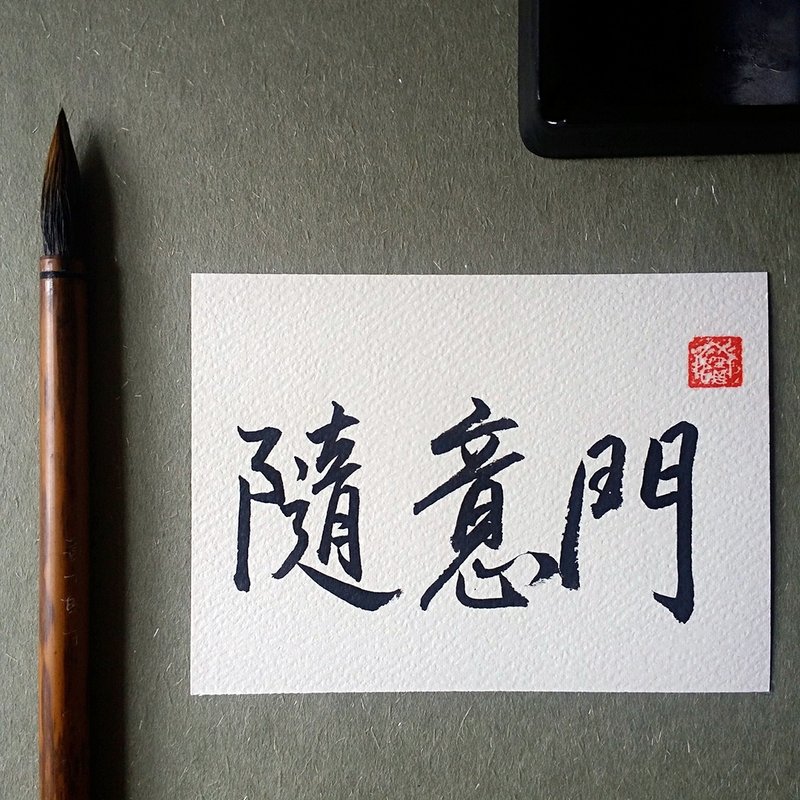 隨意門